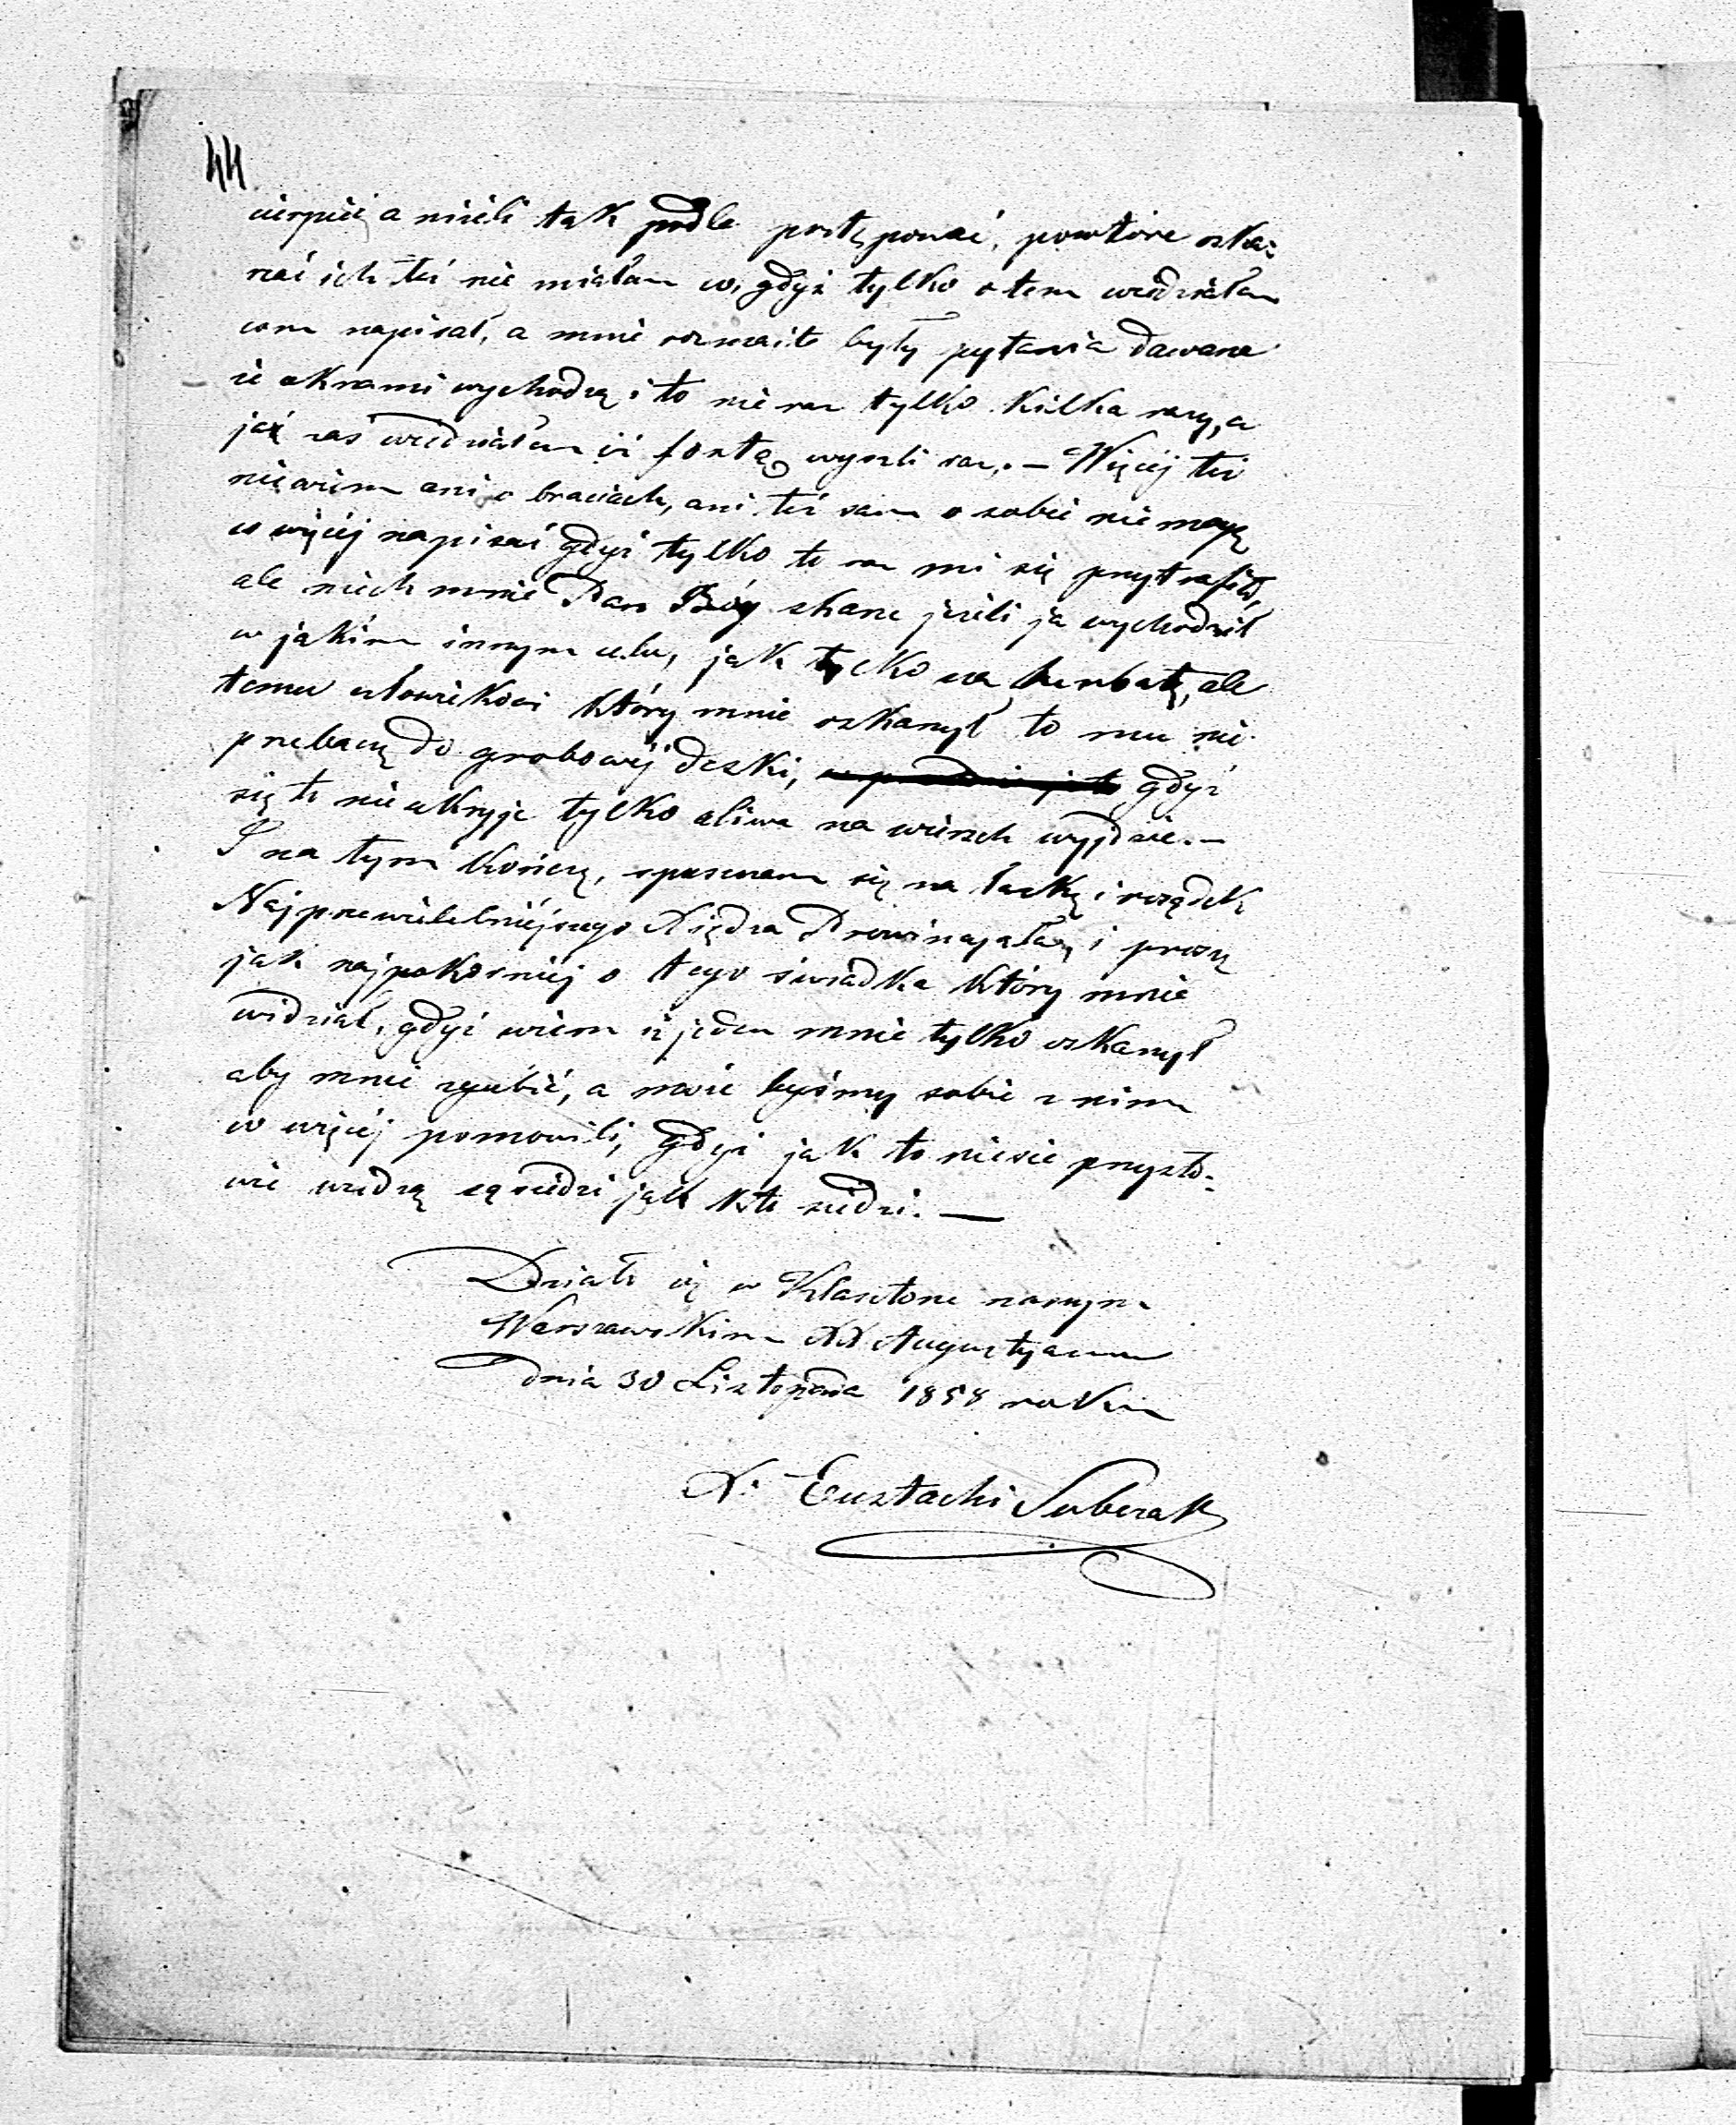 44
cierpieć a niżeli tak podle postępować, powtóre oska-
rzać ich też nie miałem co, gdyż tylko o tem wiedziałem
com napisał, a mnie rozmaite były pytania dawane
że oknami wychodzą i to nie raz tylko kilka razy, a
ja zaś wiedziałem iż fortą wyszli raz. — Więcej też
niewiem ani o braciach, ani też sam o sobie nie mogę
co więcej napisać gdyż tylko to raz mi się przytrafiło,
ale niech mnie Pan Bóg skarze jeżeli ja wychodził
w jakim innym celu, jak tylko na herbatę, ale
temu człowiekowi który mnie oskarzył to mu nie
przebaczę do grobowéj deski, gdyż
się to nie ukryje tylko oliwa na wierzch wyjdzie. —
I na tym kończę, spuszczam się na łaskę i rozsądek
Najprzewielebniéjszego Xiędza Prowincyała, i proszę
jak najpokorniéj o tego świadka który mnie
widział, gdyż wiem iż jeden mnie tylko oskarzył
aby mnie zgubić, a może byśmy sobie z nim
co więcéj pomowili, gdyż jak to niesie przysło-
wie wiedzą sąsiedzi jak kto siedzi. —
Działo się w Klasztorze naszym
Warszawskim XX Augustyanów
dnia 30 Listopada 1858 roku
X. Eustachi Suberak